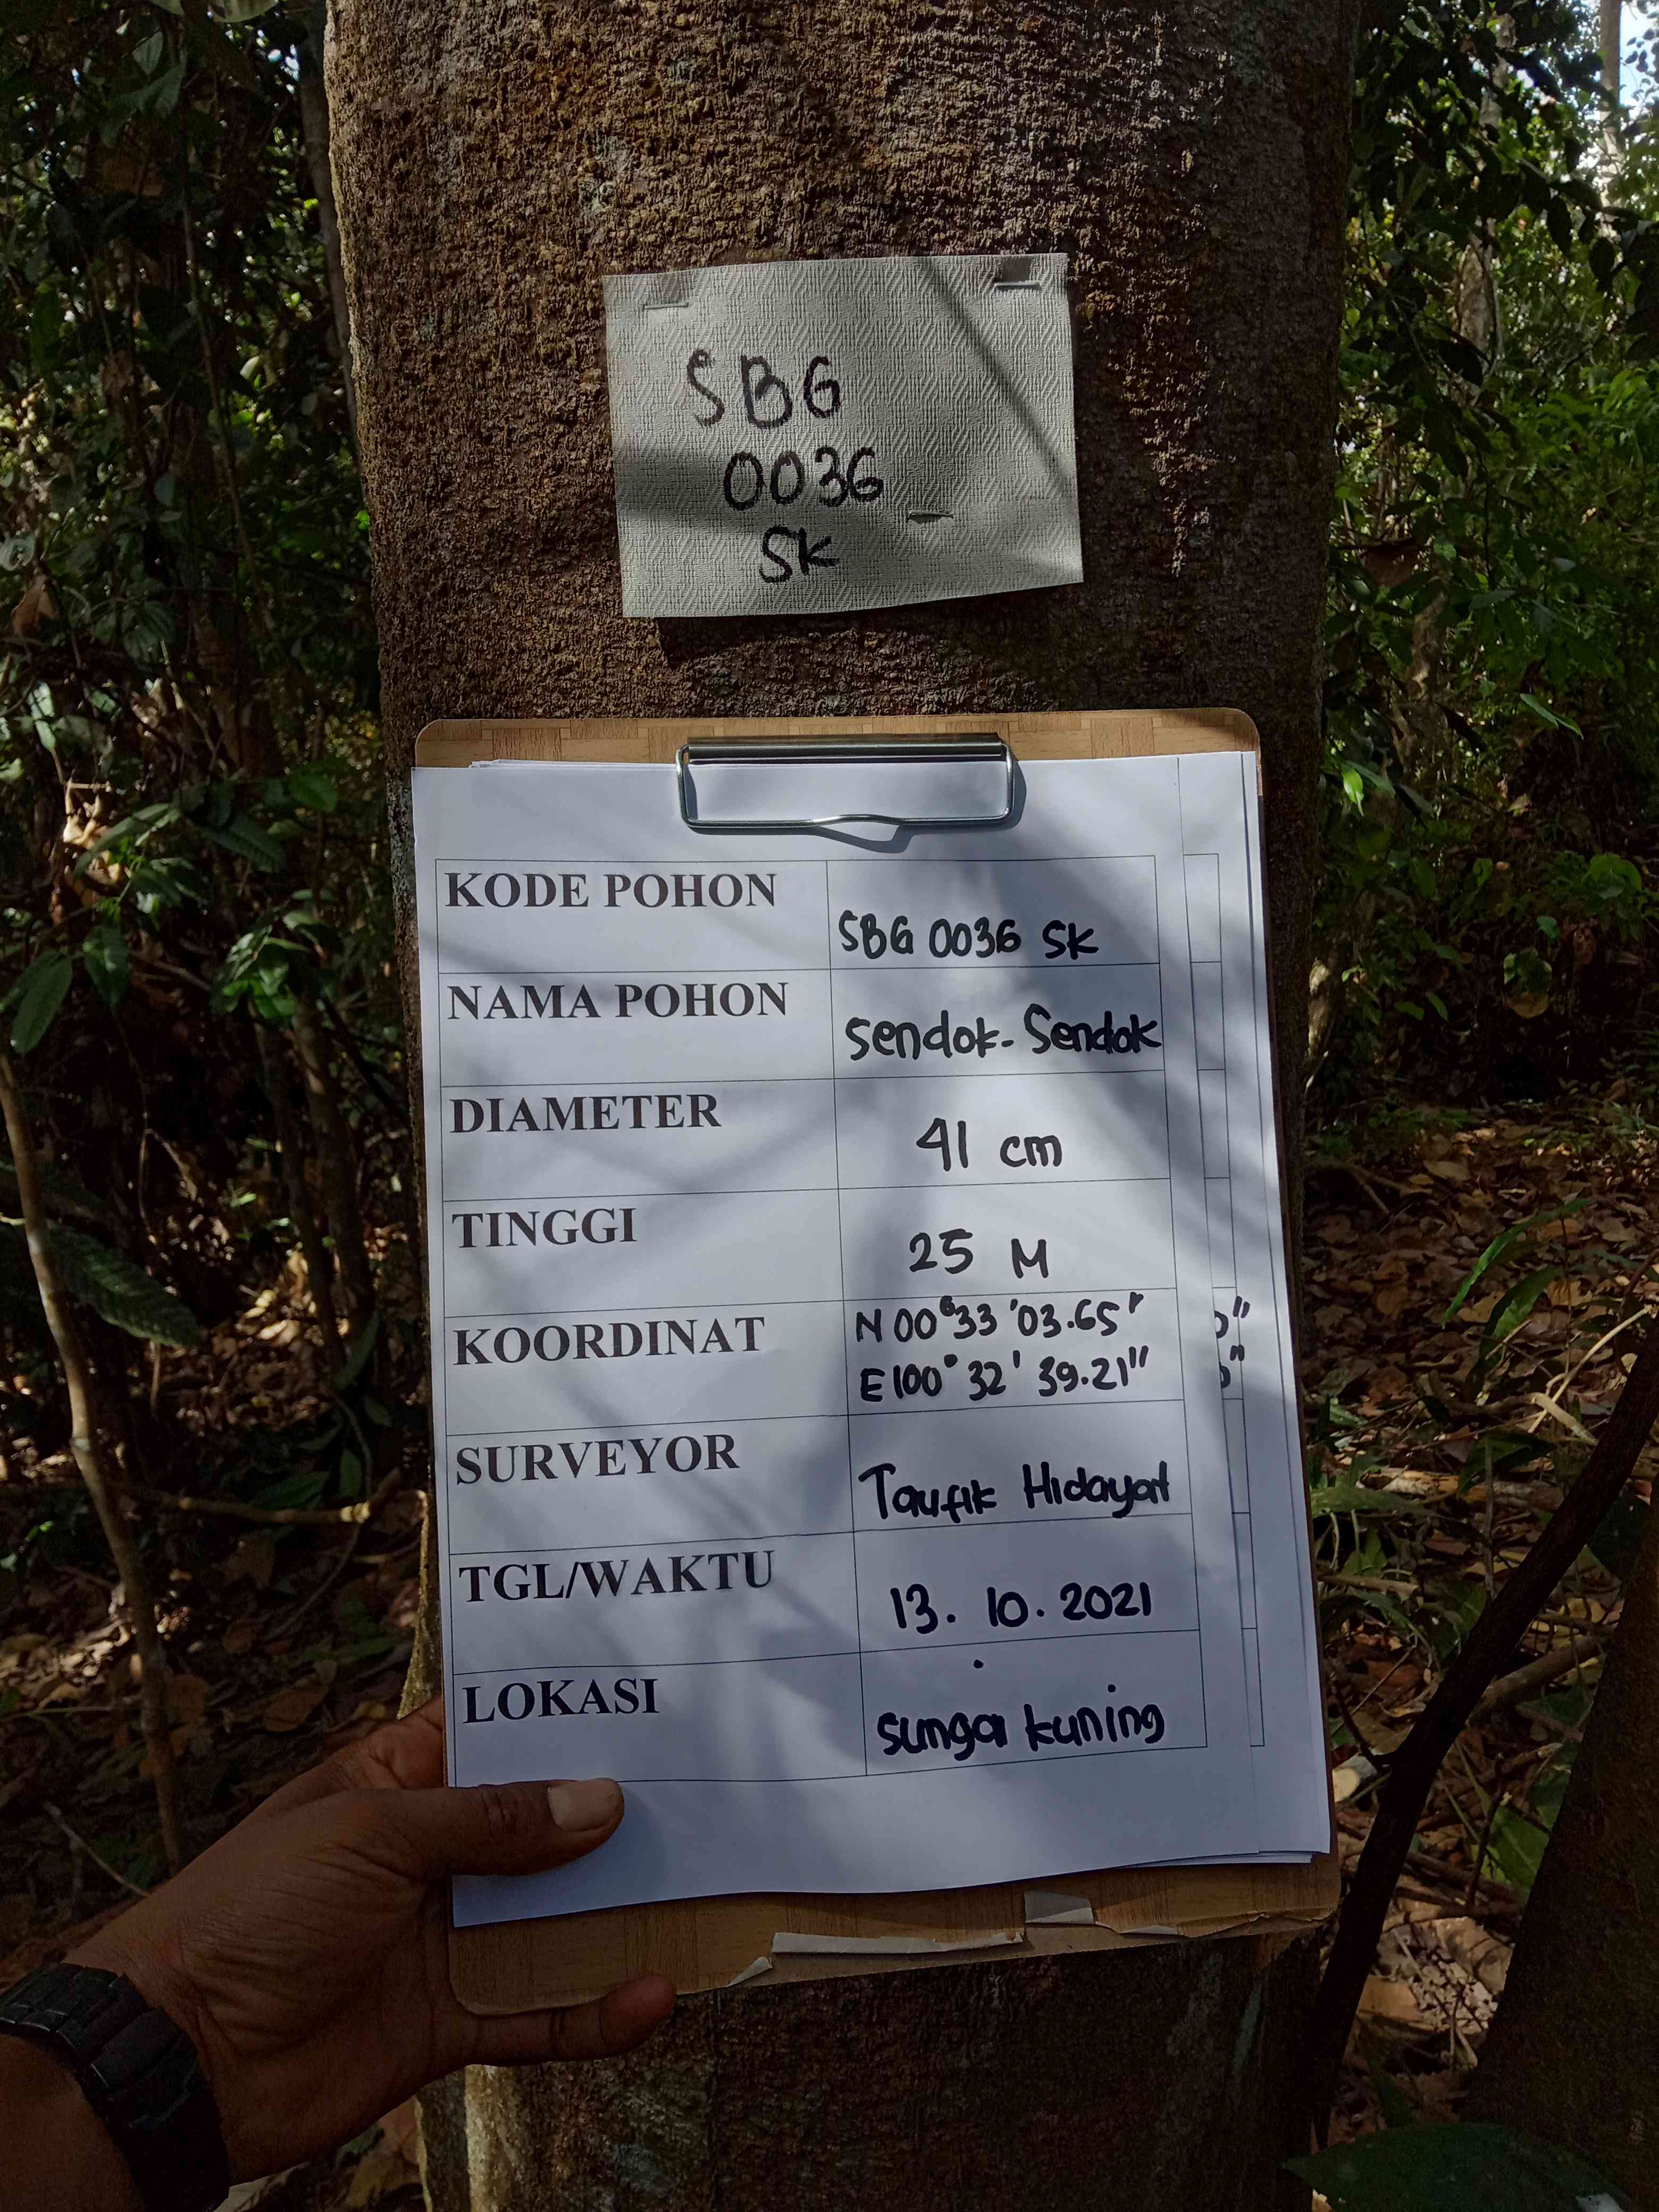 SBG
0036
SK
KODE POHON
SBG 0036 SK
NAMA POHON
Sendok-Sendok
DIAMETER
41 cm
TINGGI
25 M
KOORDINAT
N 00°33'03.65"
E 100°32'39.21"
SURVEYOR
Taufik Hidayat
TGL/WAKTU
13.10.2021
LOKASI
sungai kuning